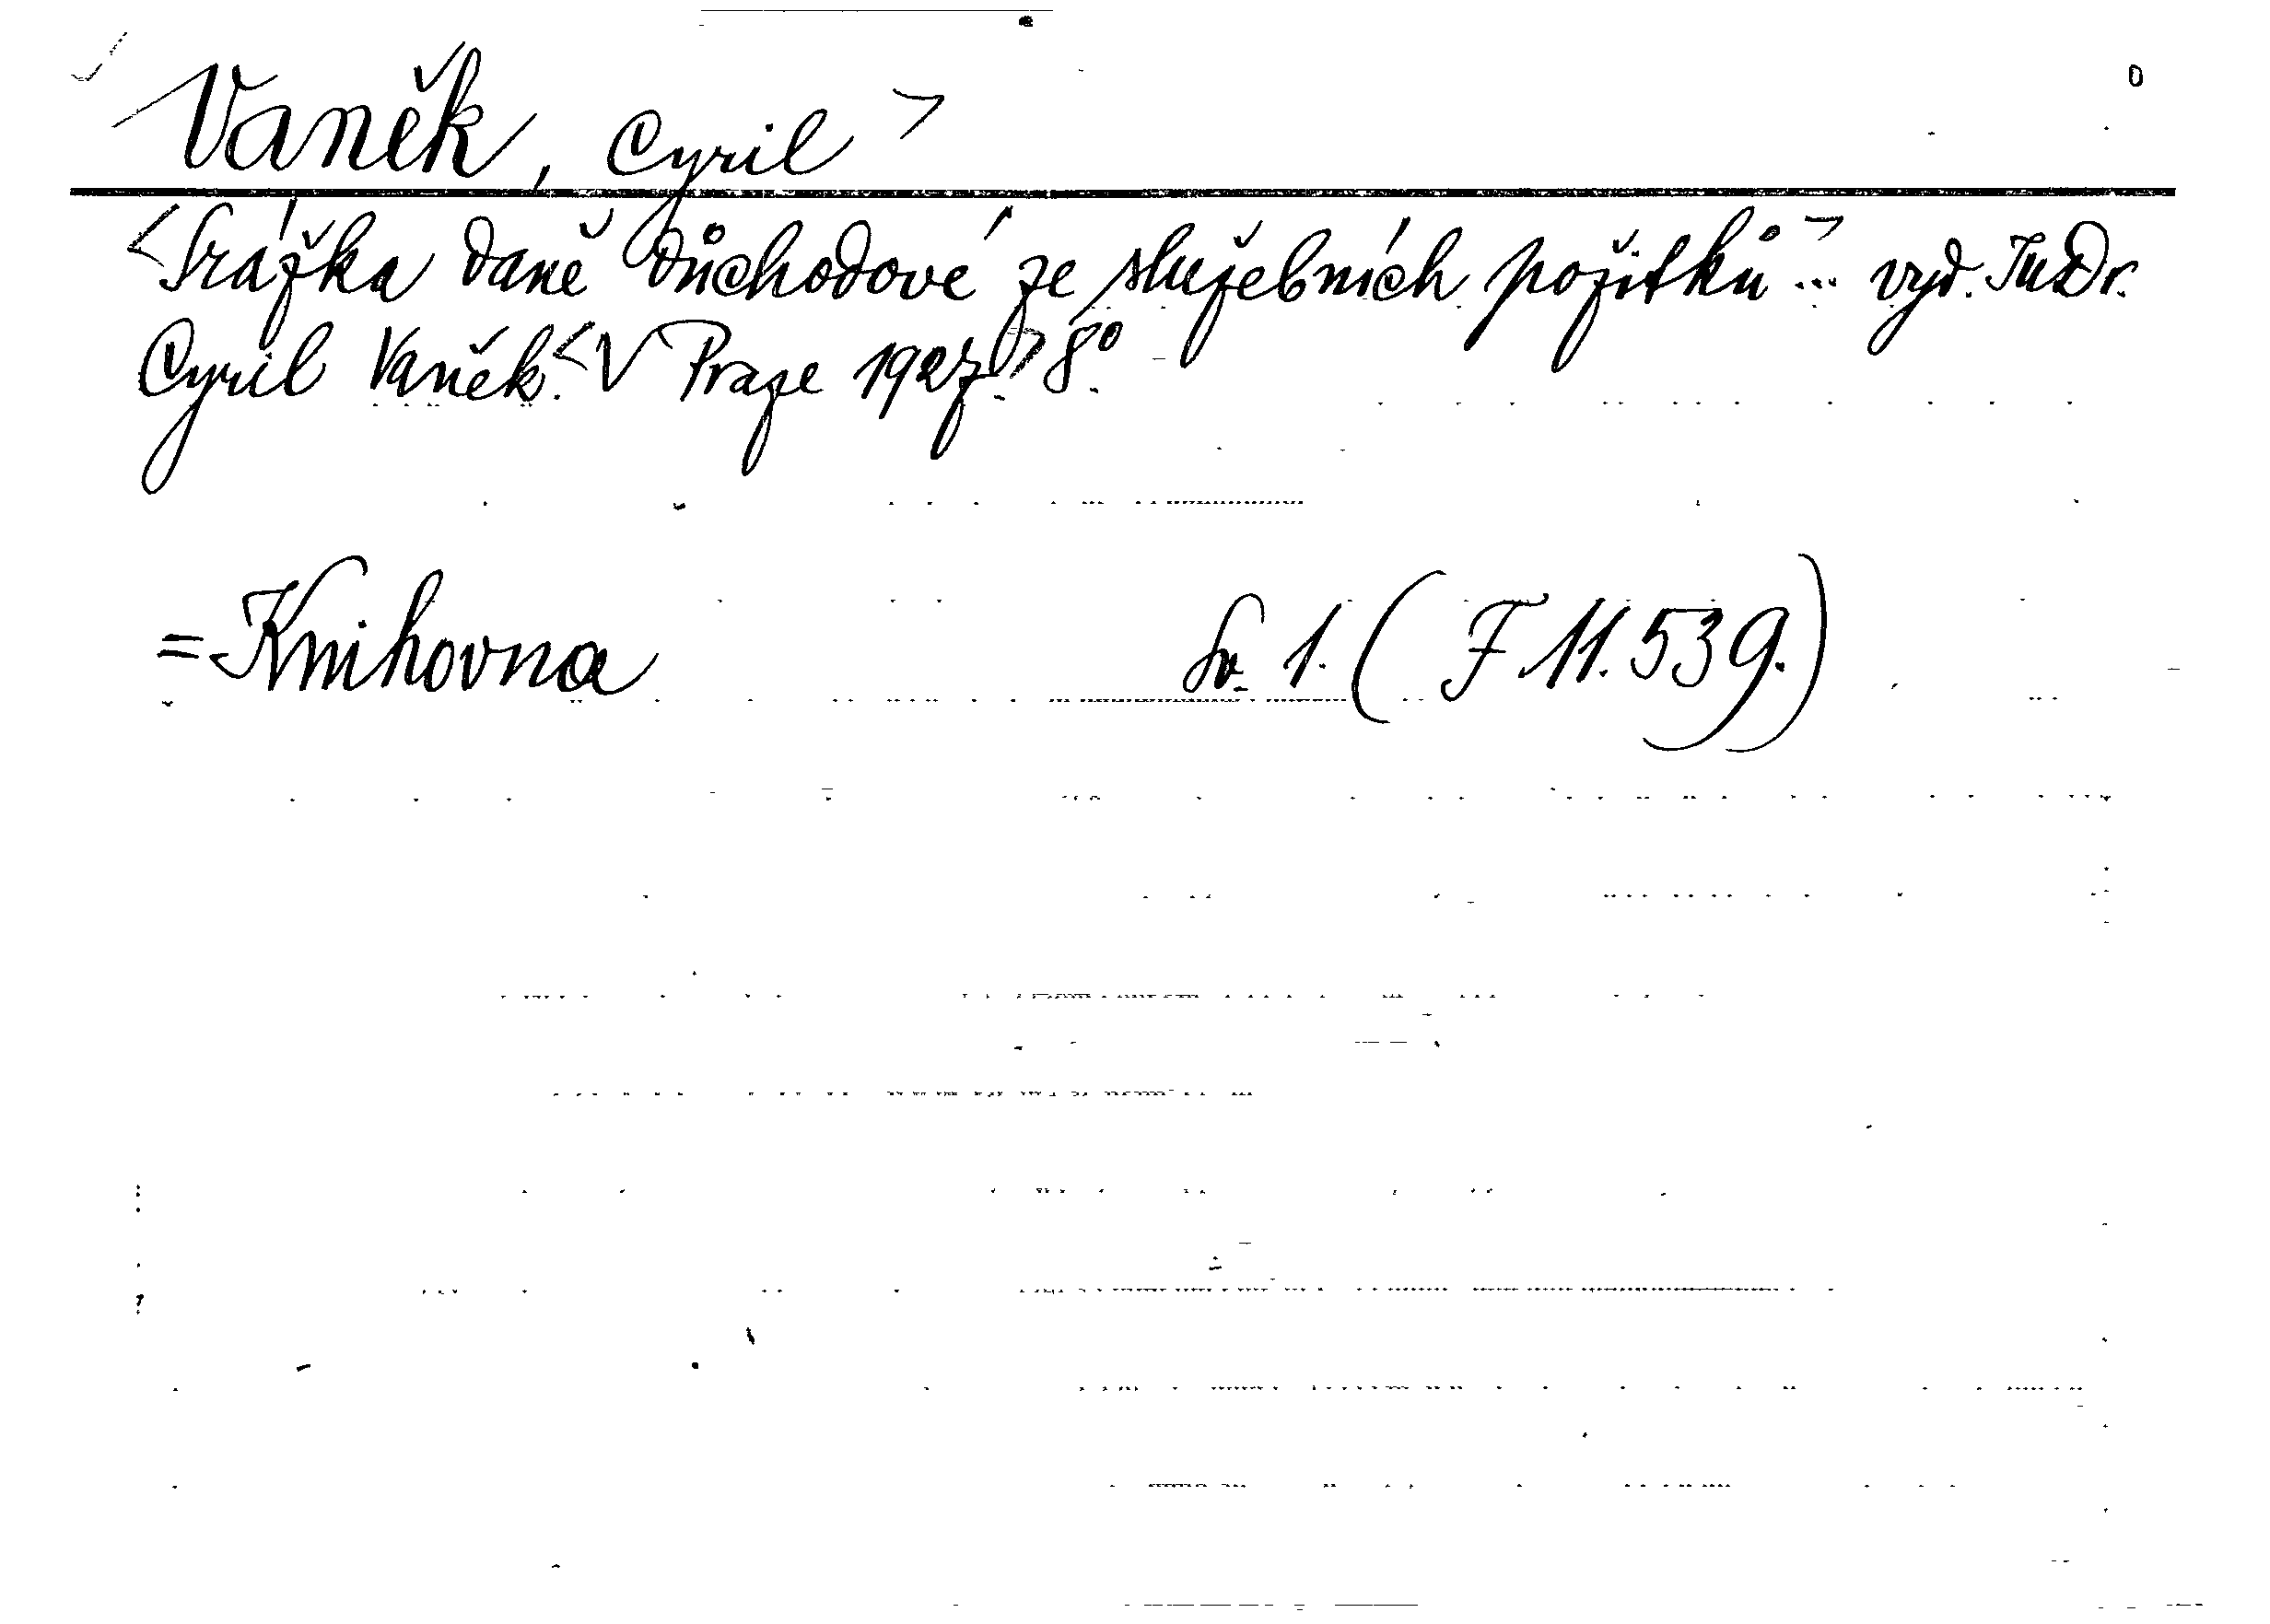 Vaněk, Cyril >
<Srážka daně důchodové ze služebních požitků...> vyd. JuDr.
Cyril Vaněk. <V Praze 1927.> 8°.
= Knihovna Sv. 1. (F 11.539.)